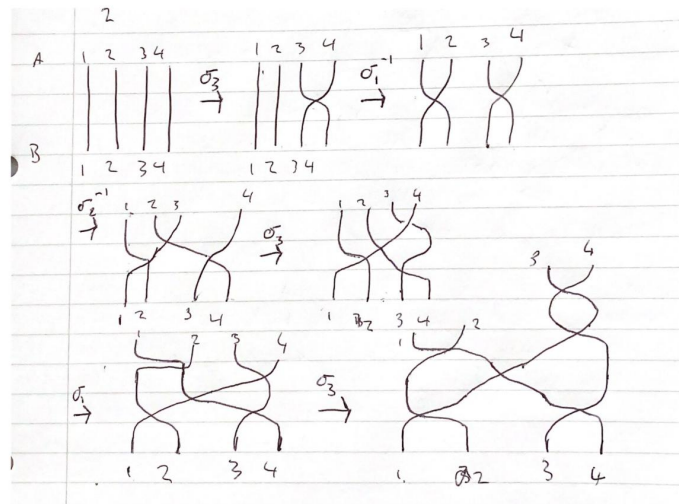 2
A 1 2 3 4 σ3 → 1 2 3 4 σ1⁻¹ → 1 2 3 4
B 1 2 3 4 1 2 3 4
σ2⁻¹ → 1 2 3 4 σ3 → 1 2 3 4
3 4
1 2 3 4 1 2 3 4
1 2 3 4 1 2
σ1 → σ3 →
1 2 3 4 1 2 3 4